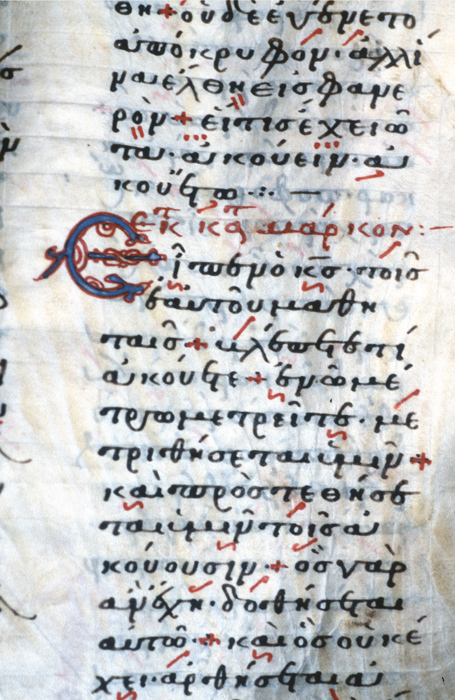 θη + οὐδὲ ἐγένετο
ἀπόκρυφον · ἀλλ ἵ
να ἔλθη εἰς φανε
ρὸν + εἴ τις ἔχει ὦ
τα · ἀκούειν · ἀ
κουέτω ·:· —
ἐκ κατὰ μάρκον : —
Εἶπεν ὁ κς · τοῖς
ἑαυτοῦ μαθη
ταῖς + βλέπετε τί
ἀκούετε + ἐν ὧ μέ
τρω μετρεῖτε · με
τριθήσεται ὑμῖν +
καὶ προστεθήσε
ται ὑμῖν τοῖς ἀ
κούουσιν · + ὃς γὰρ
ἂν ἔχη · δοθήσεται
αυτῶ · + καὶ ὃς οὐκ ἔ
χει · ἀρθήσεται ἀ